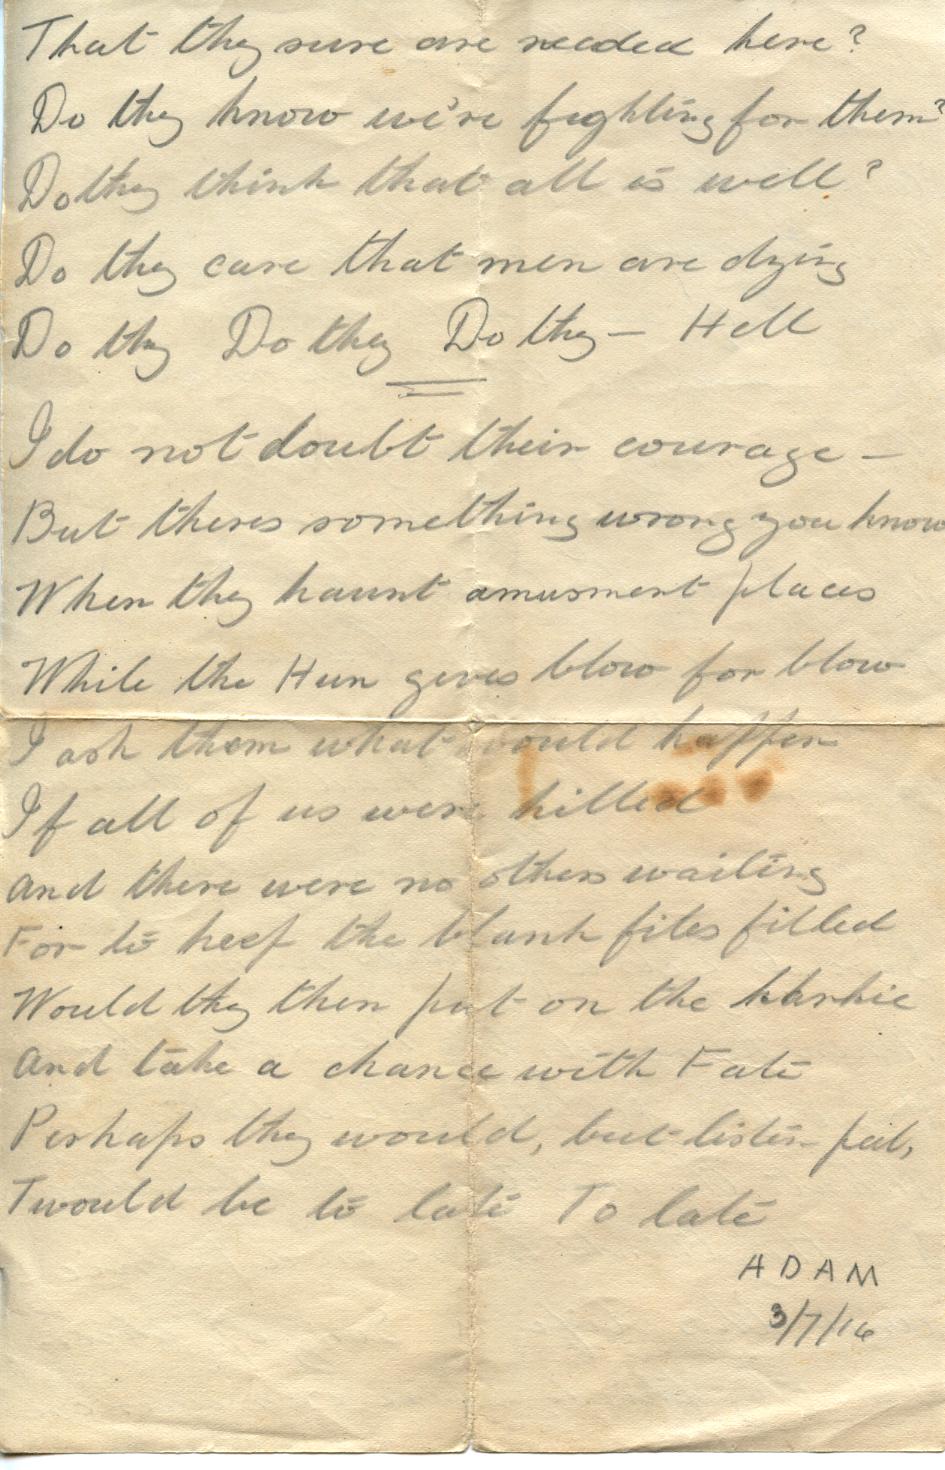 That they sure are needed here?
Do they know we're fighting for them?
Do they think that all is well?
Do they care that men are dying
Do they Do they Do they — Hell
I do not doubt their courage —
But theres something wrong you know
When they haunt amusment places
While the Hun gives blow for blow
I ask them what would happen
If all of us were killed
And there were no others waiting
For to keep the blank files filled
Would they then put on the kharkie
And take a chance with Fate
Perhaps they would, but listen pal,
Twould be to late To late
ADAM
3/7/16